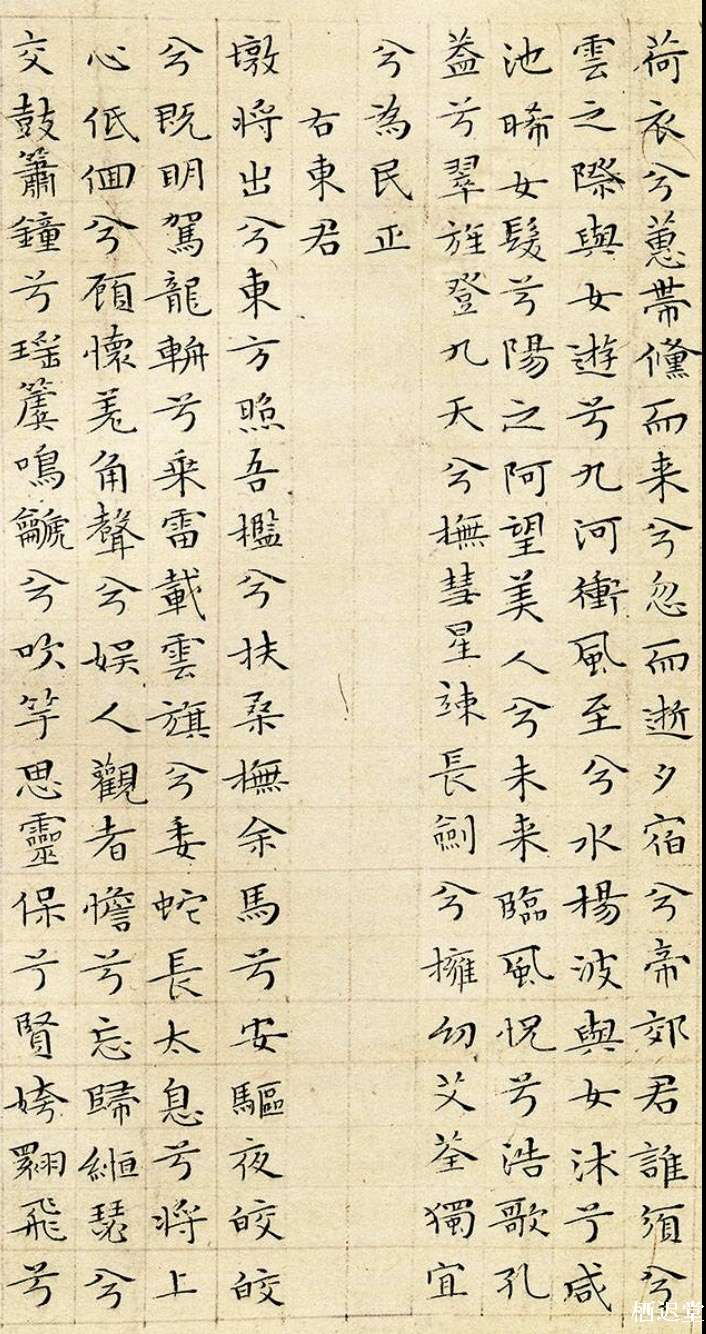 荷衣兮蕙帶儵而来兮忽而逝夕宿兮帝郊君誰須兮
雲之際與女遊兮九河衝風至兮水楊波與女沐兮咸
池晞女髮兮陽之阿望美人兮未来臨風怳兮浩歌孔
葢兮翠旌登九天兮撫彗星竦長劍兮擁幼艾荃獨宜
兮為民正
右東君
墩將出兮東方照吾檻兮扶桑撫余馬兮安驅夜皎皎
兮既明駕龍輈兮乗雷載雲旗兮委蛇長太息兮將上
心低佪兮顧懷羌角聲兮娱人觀者憺兮忘歸緪瑟兮
交鼓簫鐘兮瑶簴鳴龥兮吹竽思靈保兮賢姱翾飛兮
栖迟堂